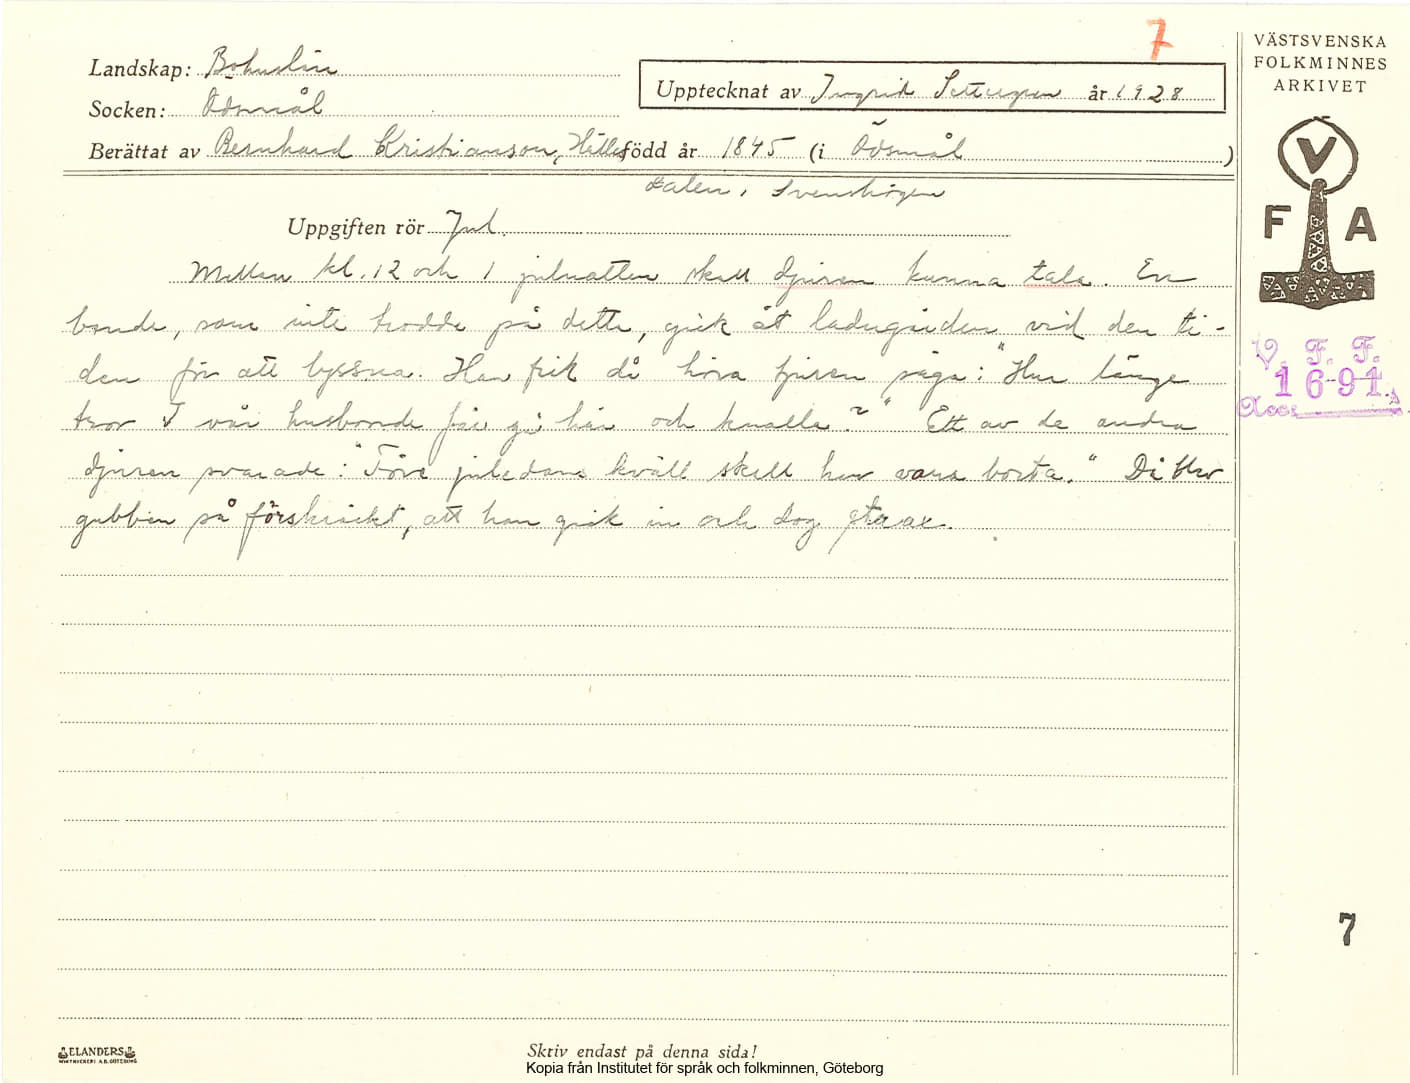 7
Landskap: Bohuslän
Socken: Ödsmål
Upptecknat av Ingrid år 1928
Berättat av Bernhard Kristianson, Hälle- född år 1845 (i Ödsmål)
dalen, Svenshögen
Uppgiften rör Jul.
Mellan kl. 12 och 1 julnatten skall djuren kunna tala. En
bonde, som inte trodde på detta, gick åt ladugården vid den ti-
den för att lyssna. Han fick då höra tjuren säga: "Hur länge
tror I vår husbonde får gå här och knalla?" Ett av de andra
djuren svarade: "Före juledans kväll skall han vara borta." Då blev
gubben så förskräckt, att han gick in och dog strax.
VÄSTSVENSKA
FOLKMINNES
ARKIVET
V
F A
V. F. F.
1691
Acc.
7
ELANDERS
Skriv endast på denna sida!
Kopia från Institutet för språk och folkminnen, Göteborg